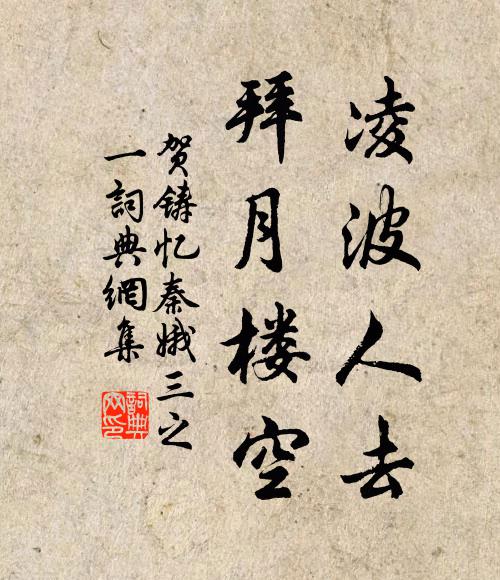 凌波人去
拜月楼空
贺铸忆秦娥三之
一詞典網集
詞典
网印